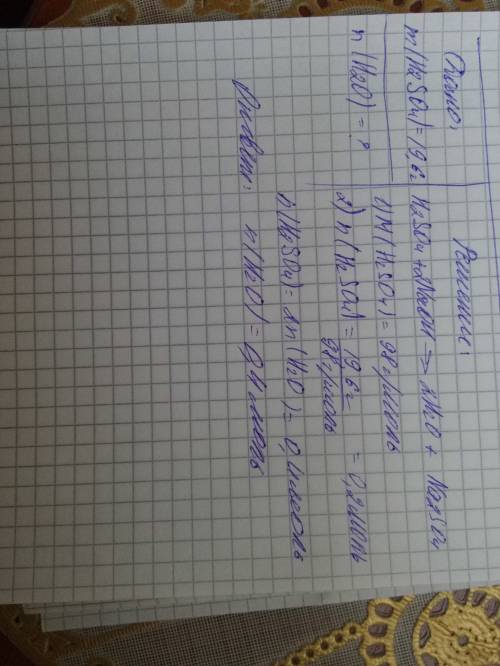 Дано:
m(H2SO4)=19,6г
n(H2O) = ?
Решение:
H2SO4 + 2NaOH → 2H2O + Na2SO4
1) M(H2SO4) = 98 г/моль
2) n(H2SO4) = 19,6г / 98 г/моль = 0,2 моль
n(H2SO4) = 2n(H2O) = 0,4 моль
Ответ: n(H2O) = 0,4 моль